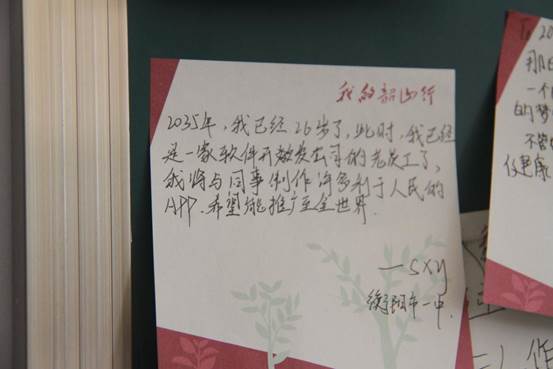 我的韶山行
2035年，我已经26岁了，此时，我已经
是一家软件开发公司的老员工了，
我将与同事制作许多利于人民的
APP.希望能推广至全世界.
—SXY
衡阳市一中.
To 20
那
一个
的梦
不管
健康